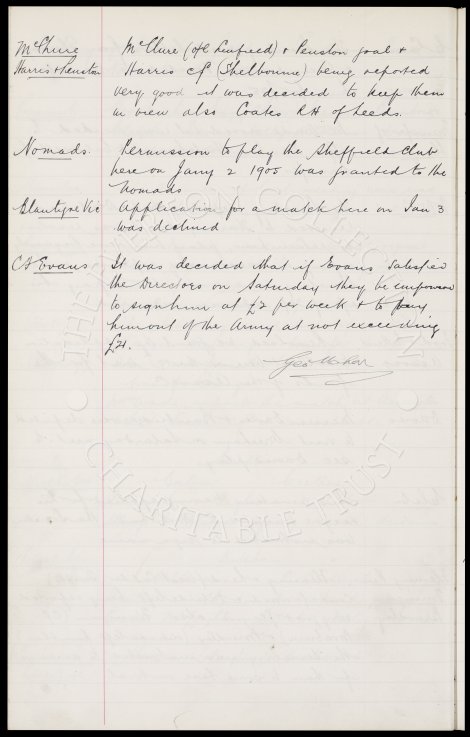 McClure McClure (of Linfield) & Penston goal &
Harris & Penston Harris cf (Shelbourne) being reported
very good it was decided to keep them
in view also Coates RH of Leeds.
Nomads. Permission to play the Sheffield Club
here on Jany 2 1905 was granted to the
Nomads
Blantyre Vic Application for a match here on Jan 3
was declined
Evans It was decided that if Evans satisfied
the Directors on Saturday they be empowered
to sign him at £2 per week & to pay
him out of the Army at not exceeding
£21.
Geo Mahon
THE EVERTON COLLECTION
CHARITABLE TRUST